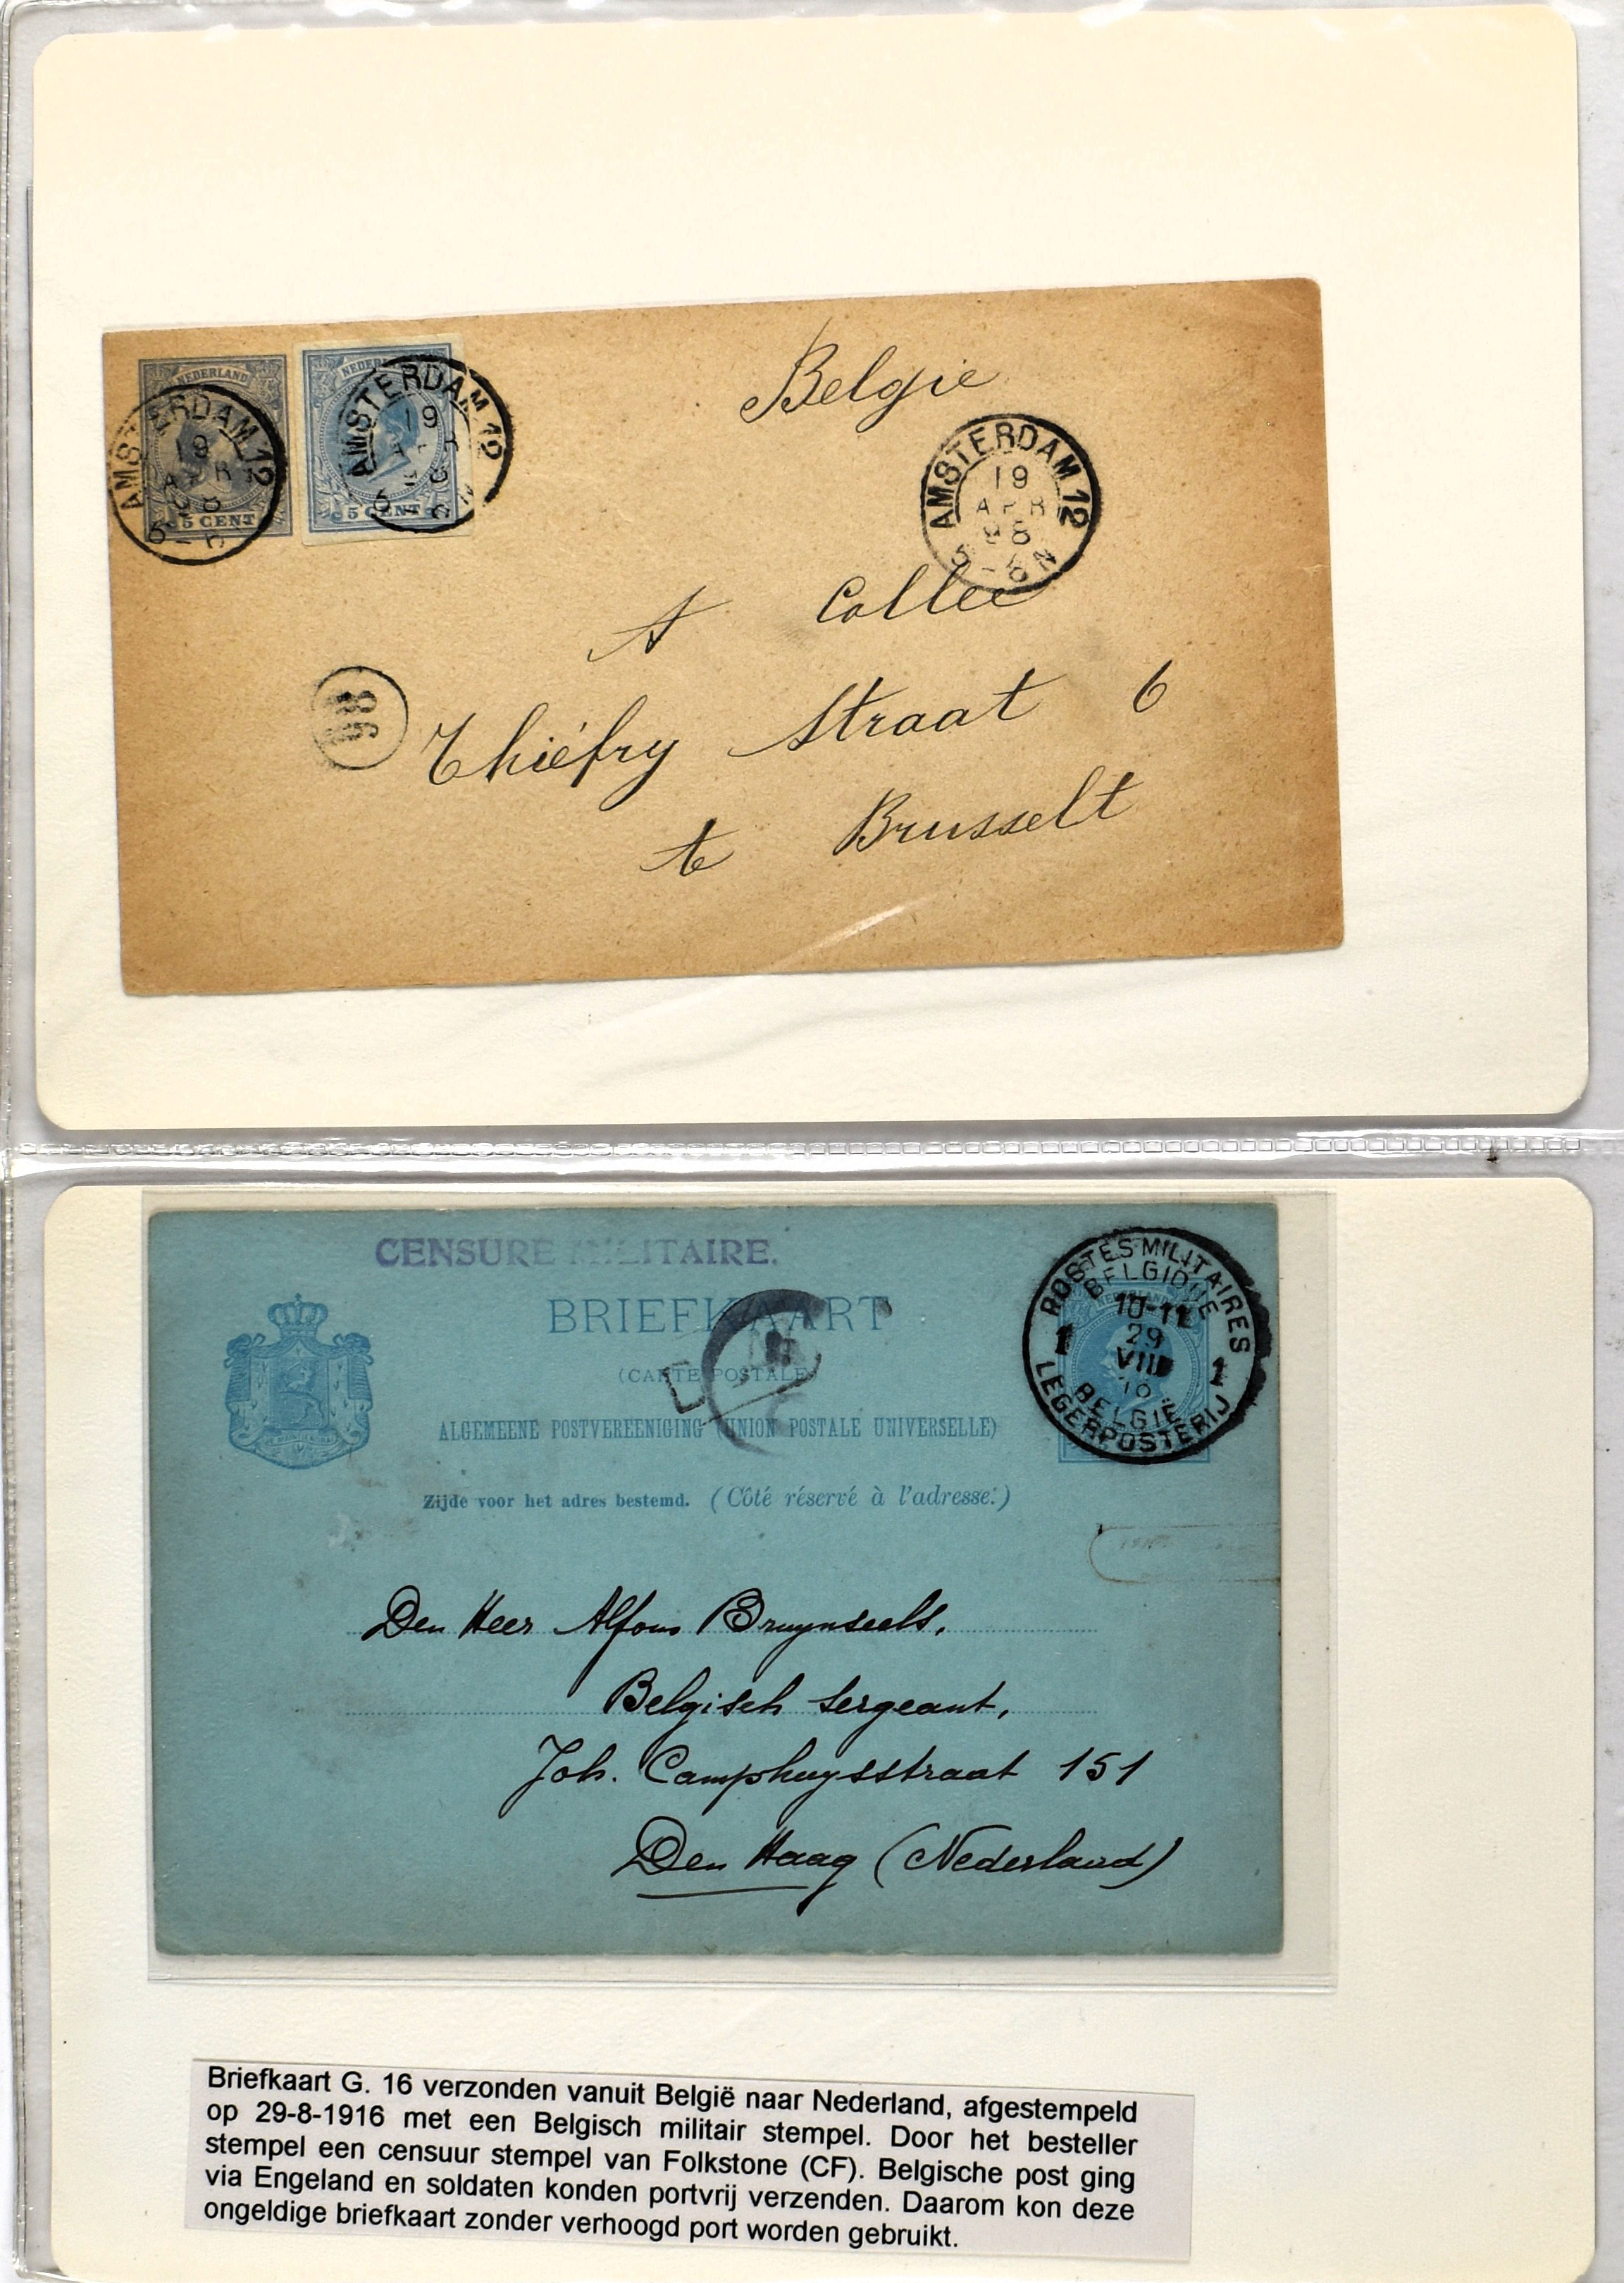 NEDERLAND
5 CENT
AMSTERDAM 12
19
APR
98
NEDERLAND
5 CENT
AMSTERDAM 12
19
België
AMSTERDAM 12
19
APR
98
5 - 6 N
A Collee
98
Thiéfry Straat 6
te Brusselt
CENSURE MILITAIRE.
BRIEFKAART
(CARTE POSTALE)
ALGEMEENE POSTVEREENIGING (UNION POSTALE UNIVERSELLE)
Zijde voor het adres bestemd. (Côté réservé à l'adresse.)
POSTES MILITAIRES
BELGIQUE
10-11
29
VIII
1 1
BELGIË
LEGERPOSTERIJ
Den Heer Alfons Bruynseels,
Belgisch sergeant,
Joh. Camphuysstraat 151
Den Haag (Nederland)
Briefkaart G. 16 verzonden vanuit België naar Nederland, afgestempeld
op 29-8-1916 met een Belgisch militair stempel. Door het besteller
stempel een censuur stempel van Folkstone (CF). Belgische post ging
via Engeland en soldaten konden portvrij verzenden. Daarom kon deze
ongeldige briefkaart zonder verhoogd port worden gebruikt.